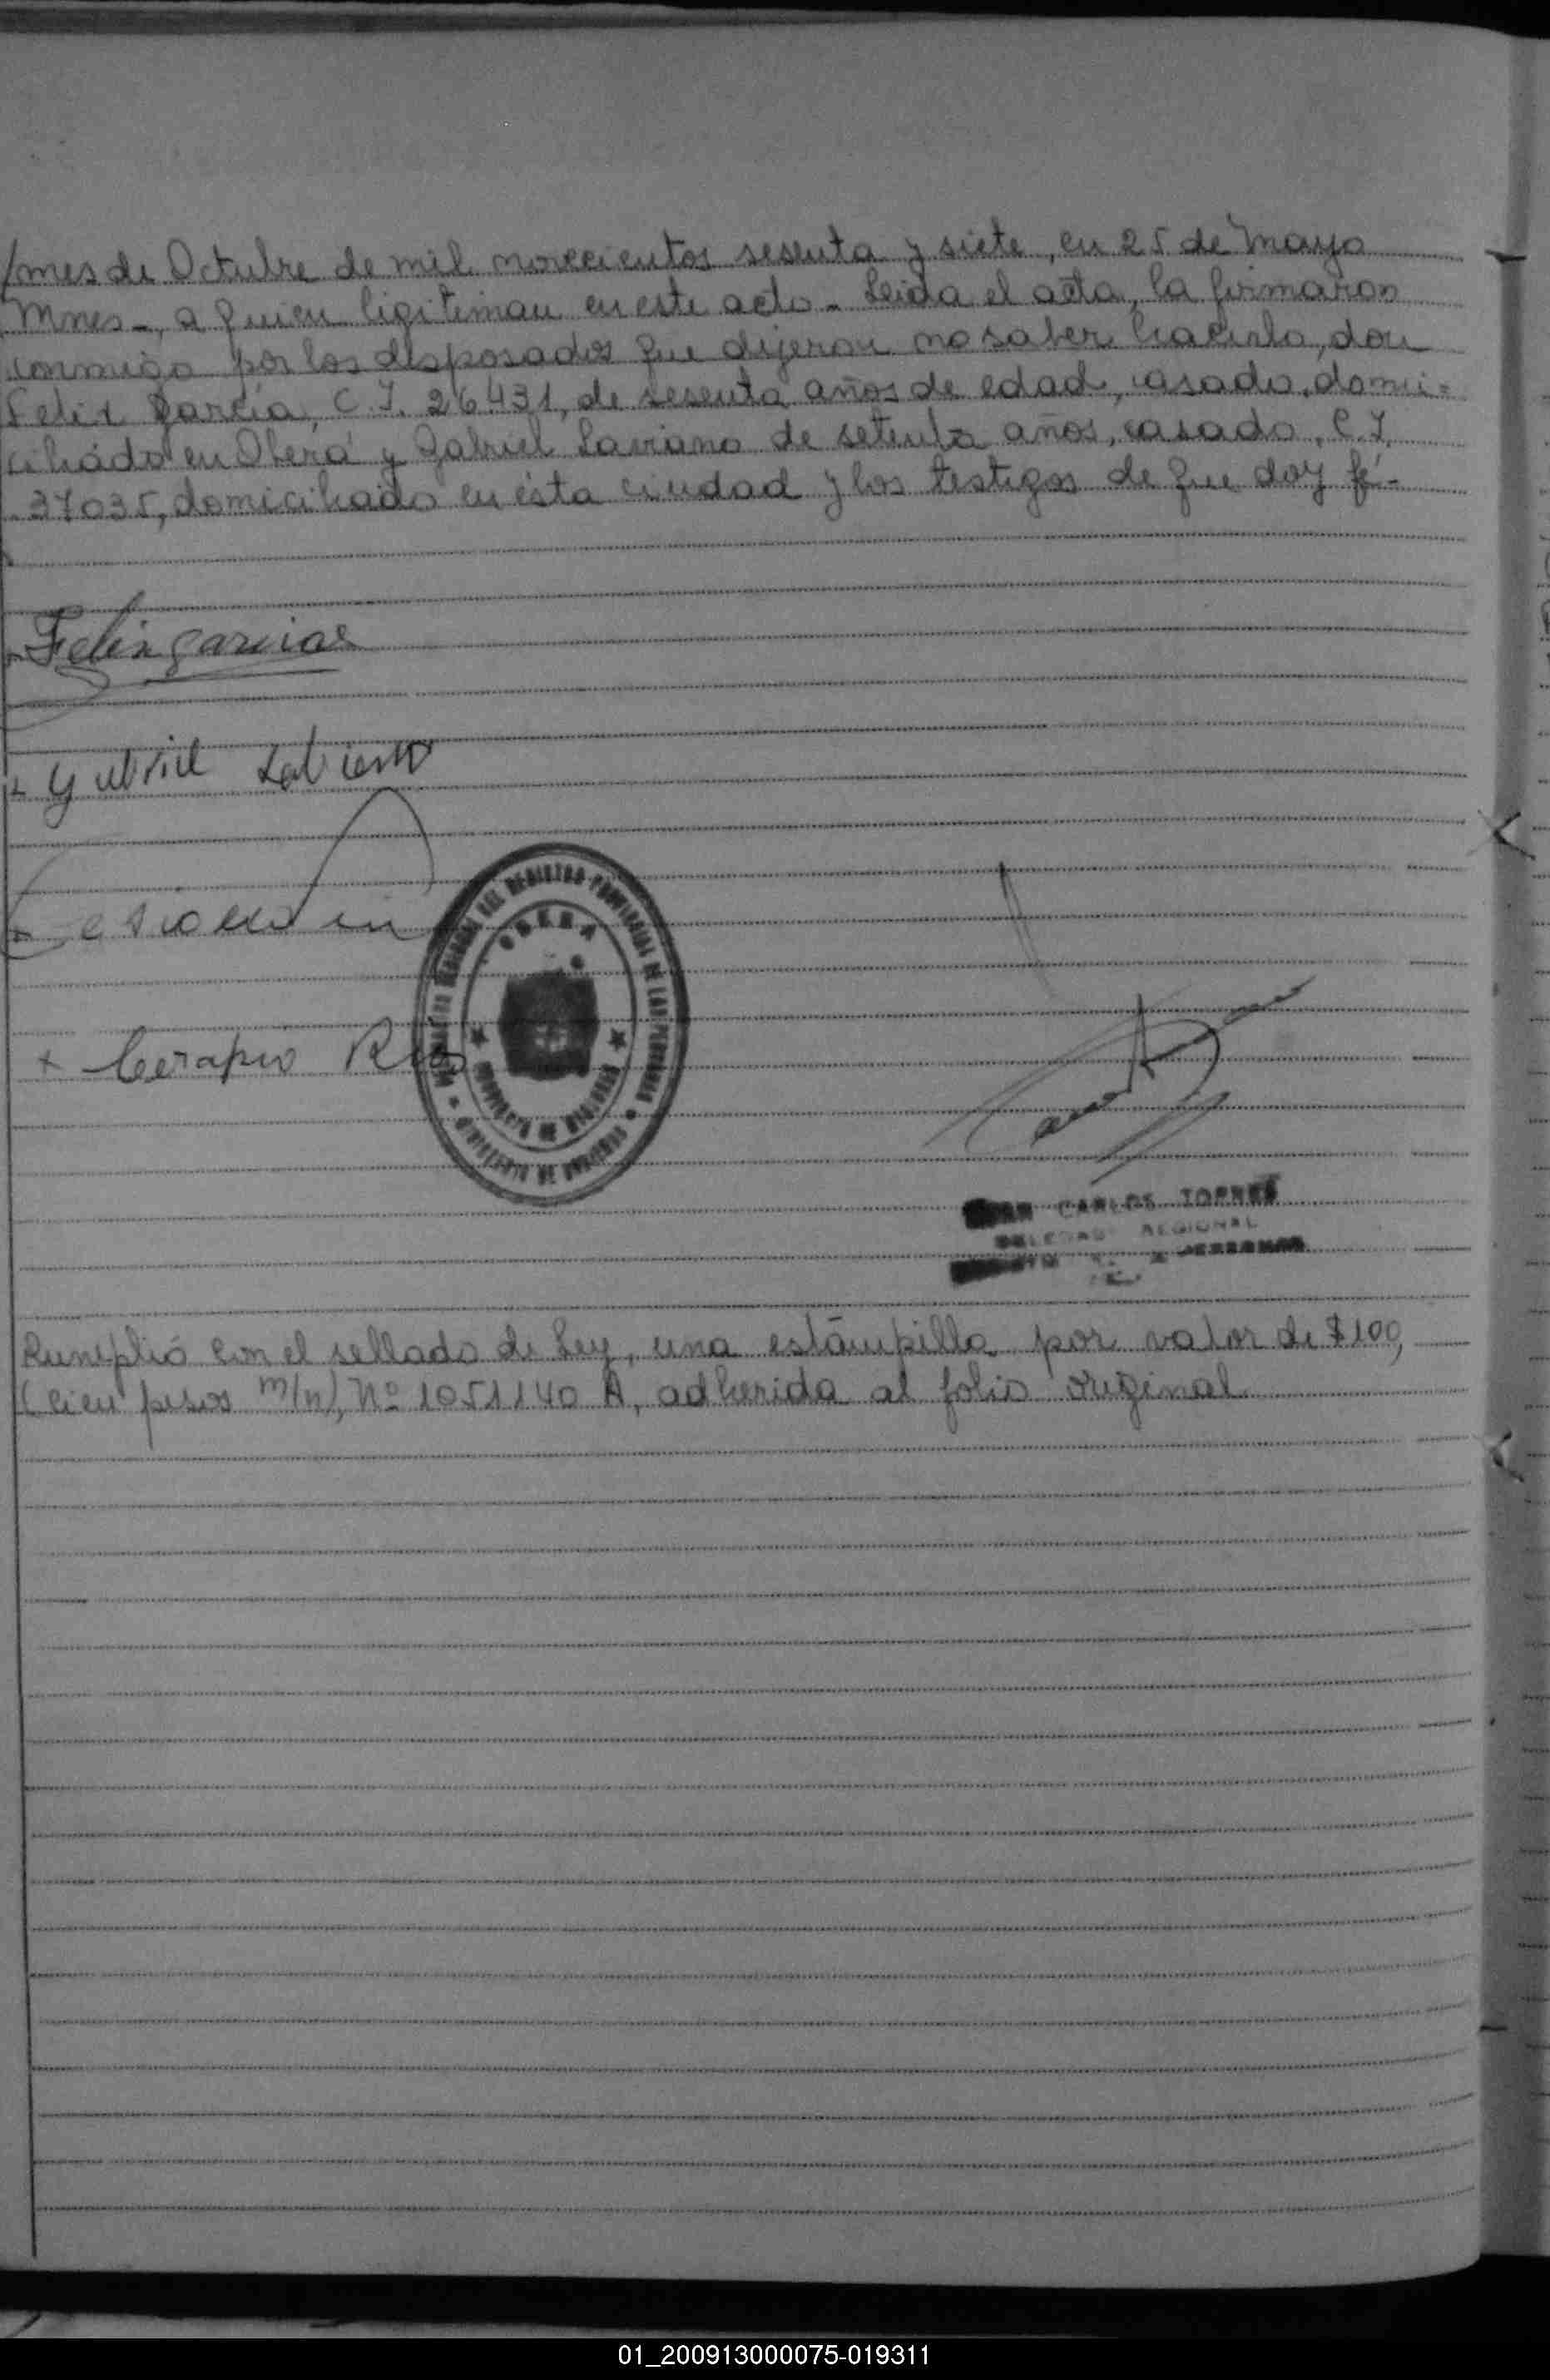 /mes de Octubre de mil novecientos sesenta y siete, en 25 de Mayo
Mnes-, a quien ligitiman en este acto - Leida el acta, la firmaron
conmigo por los desposados que dijeron no saber hacerlo, don
Felix Garcia, C.I. 26.431, de sesenta años de edad, casado, domi-
ciliado en Oberá y Gabriel Laviano de setenta años, casado, C.I.
37035, domiciliado en ésta ciudad y los testigos de que doy fé.-
Felix garcia
Gabriel
OBERA
PROVINCIA DE MISIONES
x Cerapio Rios
CARLOS TORRES
REGIONAL
Cumplió con el sellado de Ley, una estampilla por valor de $100,
(cien pesos m/n), Nº 1051140 A, adherida al folio original
01_200913000075-019311